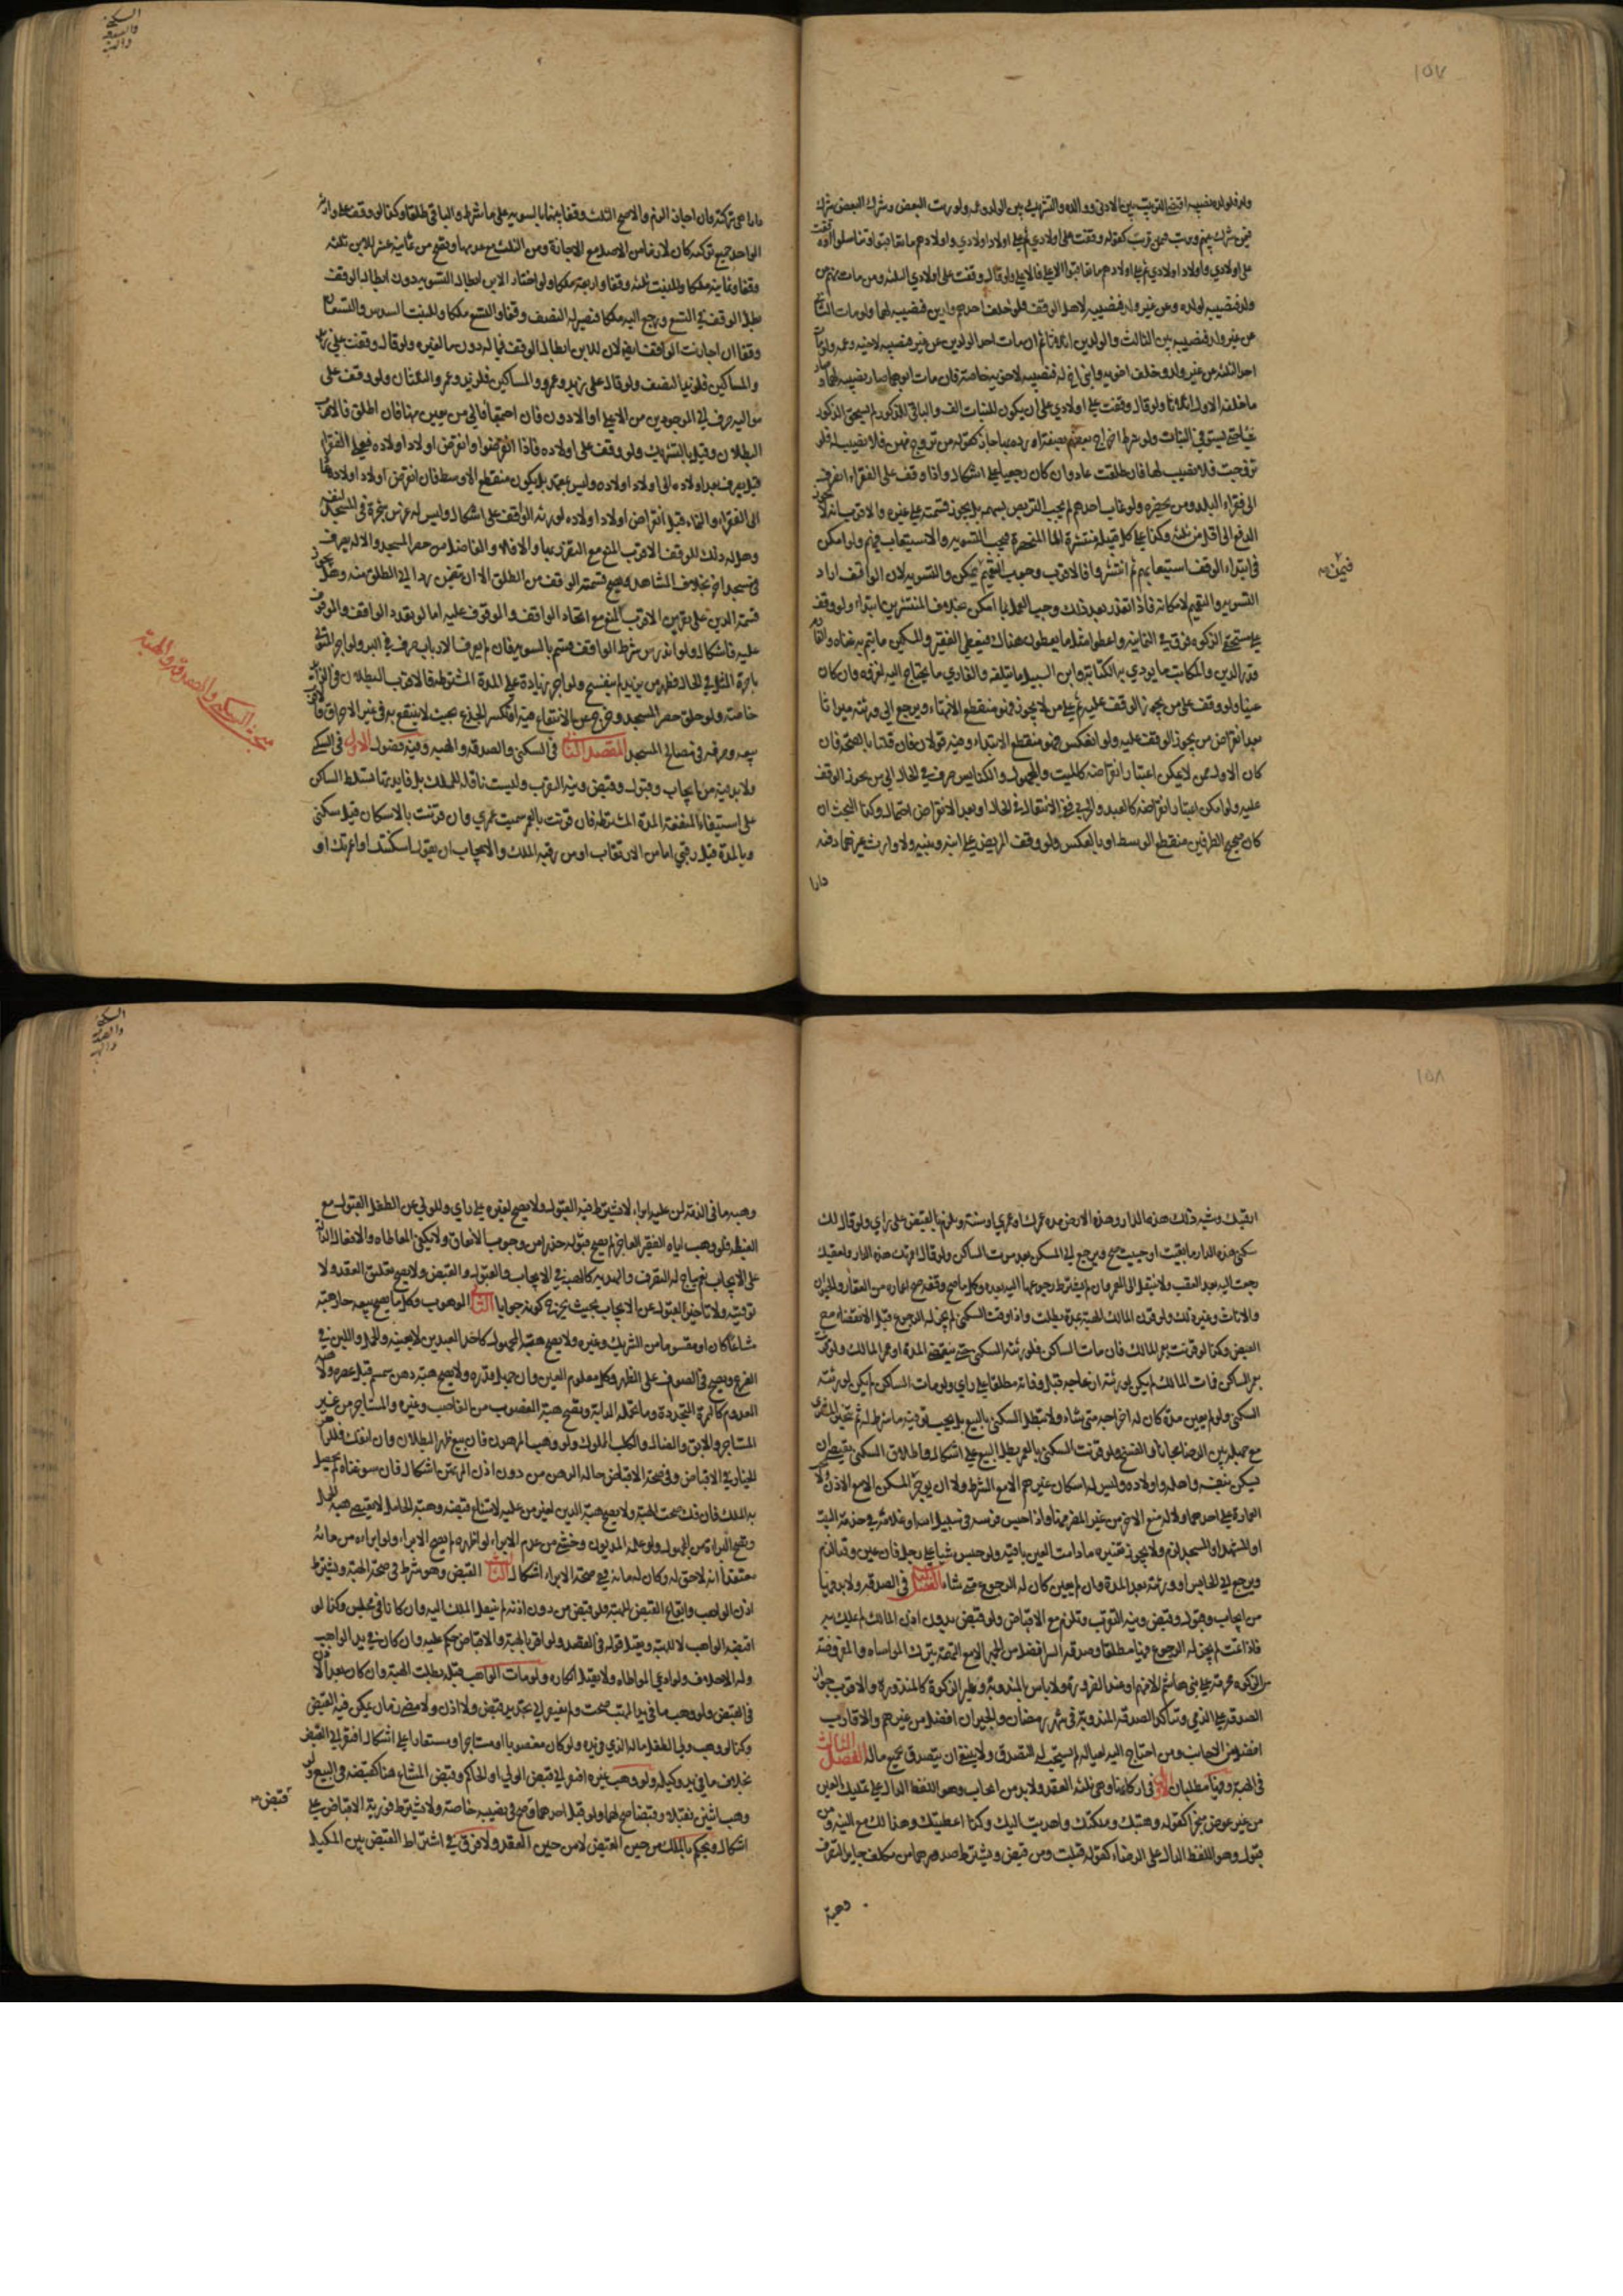 ١٥٧
ولد فلولده نصيبه اقتضى الترتيب بين الادنى ووالده والتشريك بين الولد وعمه ولو رتب البعض وشرك البعض شرك
فيمن شرك بينهم ورتب فيمن رتب كقوله وقفت على اولادي ثم على اولاد اولادي واولادهم ما تعاقبوا وتناسلوا او وقفت
على اولادي واولاد اولادي ثم على اولادهم ما تعاقبوا الاعلى فالاعلى ولو قال وقفت على اولادي الثلثة ومن مات منهم عن
ولد فنصيبه لولده ومن عن غير ولد فنصيبه لاهل الوقف فلو خلف احدهم ولدين فنصيبه لهما ولو مات الثاني
عن غير ولد فنصيبه بين الثالث والولدين اثلاثا ثم ان مات احد الولدين عن غير فنصيبه لاخيه وعمه ولو مات
احد الثلثة من غير ولد وخلف اخويه وابني اخ له فنصيبه لاخويه خاصة فان مات ابوهما صار نصيبه لهما
ما خلفه الاول اثلاثا ولو قال وقفت على اولادي على ان يكون للبنات الف والباقي للذكور لم يستحق الذكور
شيئا حتى يستوفي البنات ولو شرط اخراج بعضهم بصفة او رده بها جاز كقوله من تزوج منهن فلا نصيب له فلو
تزوجت فلا نصيب لها فان طلقت عاد وان كان رجعيا على اشكال واذا وقف على الفقراء انصرف
الى فقراء البلد ومن يحضره ولو غاب احدهم لم يجب التربص بسهمه بل يجوز قسمته على غيره والاقرب انه لا يجوز
الدفع الى اقل من ثلثة وكذا على كل قبيلة منتشرة اما المنحصرة فيجب التسوية والاستيعاب فيهم ولو امكن
في ابتداء الوقف استيعابهم ثم انتشروا فالاقرب وجوب التعميم فيمن يمكن والتسوية لان الواقف اراد
فيمن صح
التسوية والتعميم لامكانه فاذا تعذر بعد ذلك وجب العمل بما امكن بخلاف المنتشرين ابتداء ولو وقف
على مستحقي الزكوة فرق في الثمانية واعطوا مثل ما يعطون هناك فيعطى الفقير والمسكين ما يتم به غناه والغارم
قدر الدين والمكاتب ما يودي به الكتابة وابن السبيل ما يبلغه والغازي ما يحتاج اليه لغزوه وان كان
غنيا ولو وقف على من يجوز الوقف عليه ثم على من لا يجوز فهو منقطع الانتهاء ويرجع الى ورثته ميراثا
بعد انقراض من يجوز الوقف عليه ولو انعكس فهو منقطع الابتداء وفيه قولان فان قلنا بالصحة فان
كان الاول ممن لا يمكن اعتبار انقراضه كالميت والمجهول والكنايس صرف في الحال الى من يجوز الوقف
عليه ولو امكن اعتبار انقراضه كالعبد والحربي ففي الانتقال في الحال او بعد الانقراض احتمال وكذا البحث ان
كان صحيح الطرفين منقطع الوسط او بالعكس ولو وقف المريض على ابنه وبنته ولا وارث غيرهما دفعة
دارا
السكنى
والصدقة
والهبة
دارا هي تركته وان اجازا لزم والا صح الثلث وقفا بينهما بالسوية على ما شرط والباقي طلقا وكذا لو وقف على وارثه
الواحد جميع تركته كان لازما من الاصل مع الاجازة ومن الثلث مع عدمها ويصح من ثمانية عشر للابن ثلثة
وقفا وثمانية ملكا وللبنت ثلثة وقفا واربعة ملكا ولو اختار الابن ابطال التسوية دون ابطال الوقف
بطل الوقف في التسع ورجع اليه ملكا فيصير له النصف وقفا والتسع ملكا وللبنت السدس والتسعان
وقفا ان اجازت الوقف ايضا لان للابن ابطال الوقف فيما له دون ما لغيره ولو قال وقفت على زيد
والمساكين فلزيد النصف ولو قال على زيد وعمرو والمساكين فلزيد وعمرو الثلثان ولو وقف على
مواليه صرف الى الموجودين من الاعلى او الادون فان اجتمعا فالى من يعينه منهما فان اطلق فالاقرب
البطلان وقيل بالتشريك ولو وقف على اولاده فاذا انقرضوا وانقرض اولاد اولاده فعلى الفقراء
قيل يصرف بعد اولاده الى اولاد اولاده وليس بمعتمد بل يكون منقطع الاوسط فان انقرض اولاد اولاده عاد
الى الفقراء والنماء قبل انقراض اولاد اولاده لورثة الواقف على اشكال وليس له غرس شجرة في المسجد لنفسه
وهل له ذلك للوقف الاقرب المنع مع التضرر بها والا فلا والفاضل من حصر المسجد والاته يصرف
في مسجد اخر بخلاف المشاهد ويصح قسمة الوقف من الطلق الا ان يتضمن ردا الى الطلق منه وهل يجوز
قسمة الدين على بطنين الاقرب المنع مع اتحاد الواقف والموقوف عليه اما لو تعدد الواقف والموقوف
عليه فاشكال ولو اندرس شرط الواقف قسم بالسوية فان لم يعرف الارباب صرف في البر ولو اجر المتولي
باجرة المثل في الحال فظهر من يزيد لم ينفسخ ولو اجر بزيادة على المدة المشترطة فالاقرب البطلان في الزائد
خاصة ولو خلق حصر المسجد وخرج عن الانتفاع فيه او انكسر الجذع بحيث لا ينتفع به في غير الاحراق فالاقرب
بيعه وصرفه في مصالح المسجد المقصد الثاني في السكنى والصدقة والهبة وفيه فصول الاول في السكنى
ولا بد فيه من ايجاب وقبول وقبض ونية التقرب وليست ناقلة للملك بل فايدتها تسلط الساكن
على استيفاء المنفعة المدة المشترطة فان قرنت بالعمر سميت عمرى وان قرنت بالاسكان قيل سكنى
وبالمدة قيل رقبى اما من الارتقاب او من رقبة الملك والايجاب ان يقول اسكنتك او اعمرتك او
مبحث السكنى والصدقة والهبة
١٥٨
ارقبتك وشبه ذلك هذه الدار وهذه الارض مدة عمرك او عمري او سنة ويلزم بالقبض على راي ولو قال لك
سكنى هذه الدار ما بقيت او حييت صح ويرجع الى المسكن بعد موت الساكن ولو قال اعمرتك هذه الدار ولعقبك
رجعت اليه بعد العقب ولا ينتقل الى المعمر وان لم يشترط رجوعها اليه بعده وكل ما صح وقفه صح اعماره من العقار والحيوان
والاثاث وغير ذلك ولو قرن المالك الهبة بمدة بطلت واذا وقت السكنى لم يجز له الرجوع قبل الانقضاء مع
القبض وكذا لو قرنت بعمر المالك فان مات الساكن فلورثته السكنى حتى ينقضي المدة او عمر المالك ولو قرنت
بعمر الساكن فمات المالك لم يكن لورثته ازعاجه قبل وفاته مطلقا على راي ولو مات الساكن لم يكن لورثته
السكنى ولو لم يعين مدة كان له اخراجه متى شاء ولا تبطل السكنى بالبيع بل يجب توفية ما شرط له ثم يتخير المشتري
مع جهله بين الرضا مجانا والفسخ ولو قرنت السكنى بالعمر بطل البيع على اشكال واطلاق السكنى يقتضي ان
يسكن بنفسه واهله واولاده وليس له اسكان غيرهم الا مع الشرط ولا ان يوجر المسكن الا مع الاذن ولا
العمارة على احدهما ولا له منع الاخر من غير المضر منها واذا حبس فرسه في سبيل الله او غلامه في خدمة البيت
او المشهد او المسجد لزم ولا يجوز تغييره ما دامت العين باقية ولو حبس شيئا على رجل فان عين وقتا لزم
ويرجع الى الحابس او ورثته بعد المدة وان لم يعين كان له الرجوع متى شاء الفصل الثاني في الصدقة ولا بد فيها
من ايجاب وقبول وقبض ونية التقرب ويلزم مع الاقباض ولو قبض بدون اذن المالك لم يملك به
فاذا تمت لم يجز له الرجوع فيها مطلقا وصدقة السر افضل من الجهر الا مع التهمة بترك المواساة والمفروضة
من الزكوة محرمة على بني هاشم الا منهم او عند الضرورة ولا باس بالمندوبة وغير الزكوة كالمنذورة والاقرب جواز
الصدقة على الذمي وتتاكد الصدقة المندوبة في شهر رمضان والجيران افضل من غيرهم والاقارب
افضل من الاجانب ومن احتاج اليه لعياله لم يستحب له التصدق ولا ينبغي ان يتصدق بجميع ماله الفصل الثالث
في الهبة وفيه مطلبان الاول في اركانها وهي ثلثة العقد ولا بد من ايجاب وهو اللفظ الدال على تمليك العين
من غير عوض منجزا كقوله وهبتك وملكتك واهديت اليك وكذا اعطيتك وهذا لك مع النية ومن
قبول وهو اللفظ الدال على الرضاء كقوله قبلت ومن قبض ويشترط صدورهما من مكلف جايز التصرف
وهبة
السكنى
والصدقة
والهبة
وهبة ما في الذمة لمن عليه ابراء لا يشترط فيه القبول ولا يصح لغيره على راي وللولي عن الطفل القبول مع
الغبطة فلو وهب اباه الفقير العاجز لم يصح قبوله حذرا من وجوب الانفاق ولا يكفي المعاطاة والافعال الدالة
على الايجاب نعم يباح له التصرف والهدية كالهبة في الايجاب والقبول والقبض ولا يصح تعليق العقد ولا
توقيته ولا تاخير القبول عن الايجاب بحيث يخرج عن كونه جوابا الثاني الموهوب وكل ما يصح بيعه جاز هبته
مشاعا كان او مقسوما من الشريك وغيره ولا يصح هبة المجهول كاحد العبدين لا بعينه والحمل واللبن في
الضرع ويصح في الصوف على الظهر وكل معلوم العين وان جهل قدره ولا يصح هبة دهن سمسم قبل عصره ولا
المعدوم كالثمرة المتجددة وما تحمله الدابة وتصح هبة المغصوب من الغاصب وغيره والمستاجر من غير
المستاجر والابق والضال والكلب المملوك ولو وهب المرهون فان بيع ظهر البطلان وان انفك فللراهن
الخيار في الاقباض وفي صحة الاقباض حالة الرهن من دون اذن المرتهن اشكال فان سوغناه لم يحصل
به الملك فان فك صحت الهبة ولا يصح هبة الدين لغير من عليه لامتناع قبضه وهبة الحامل لا يقتضي هبة الحمل
ويصح البراءة من المجهول ولو علمه المديون وخشي من عدم الابراء لو اظهره لم يصح الابراء ولو ابراه من مائة
معتقدا انه لا حق له وكان له مائة ففي صحة الابراء اشكال الثالث القبض وهو شرط في صحة الهبة ويشترط
اذن الواهب وايقاع القبض للهبة فلو قبض من دون اذنه لم ينتقل الملك اليه وان كانا في مجلس وكذا لو
اقبضه الواهب لا للهبة ويقبل قوله في القصد ولو اقر بالهبة والاقباض حكم عليه وان كان في يد الواهب
وله الاحلاف ولو ادعى المواطاة ولا يقبل انكاره ولو مات الواهب قبله بطلت الهبة وان كان بعد الاذن
في القبض ولو وهب ما في يد المتهب صحت ولم يفتقر الى تجديد قبض ولا اذن ولا مضي زمان يمكن فيه القبض
وكذا لو وهب ولي الطفل ماله الذي في يده ولو كان مغصوبا او مستاجرا او مستعارا على اشكال افتقر الى القبض
بخلاف ما في يد وكيله ولو وهب غيره افتقر الى قبض الولي او الحاكم وقبض المشاع هنا كقبضه في البيع ولو
قبض صح
وهب اثنين فقبلا وقبضا صح لهما ولو قبل احدهما وقبض صح في نصيبه خاصة ولا يشترط فورية الاقباض على
اشكال ويحكم بالملك من حين القبض لا من حين العقد ولا فرق في اشتراط القبض بين المكيل